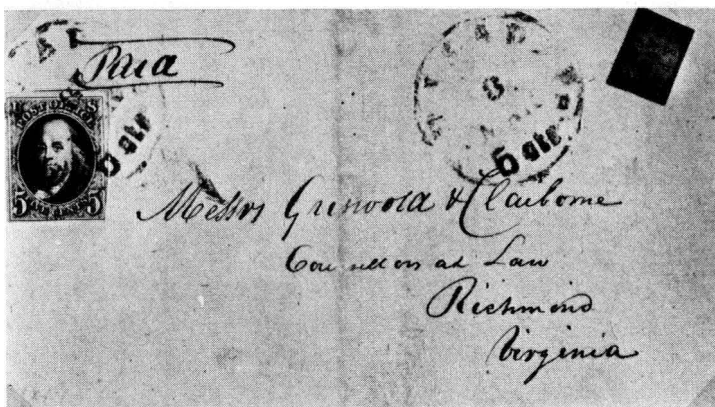 Paid
POST OFFICE
5 5
5 cts
5 cts
Messrs Griswold & Claiborne
Counsellors at Law
Richmond
Virginia